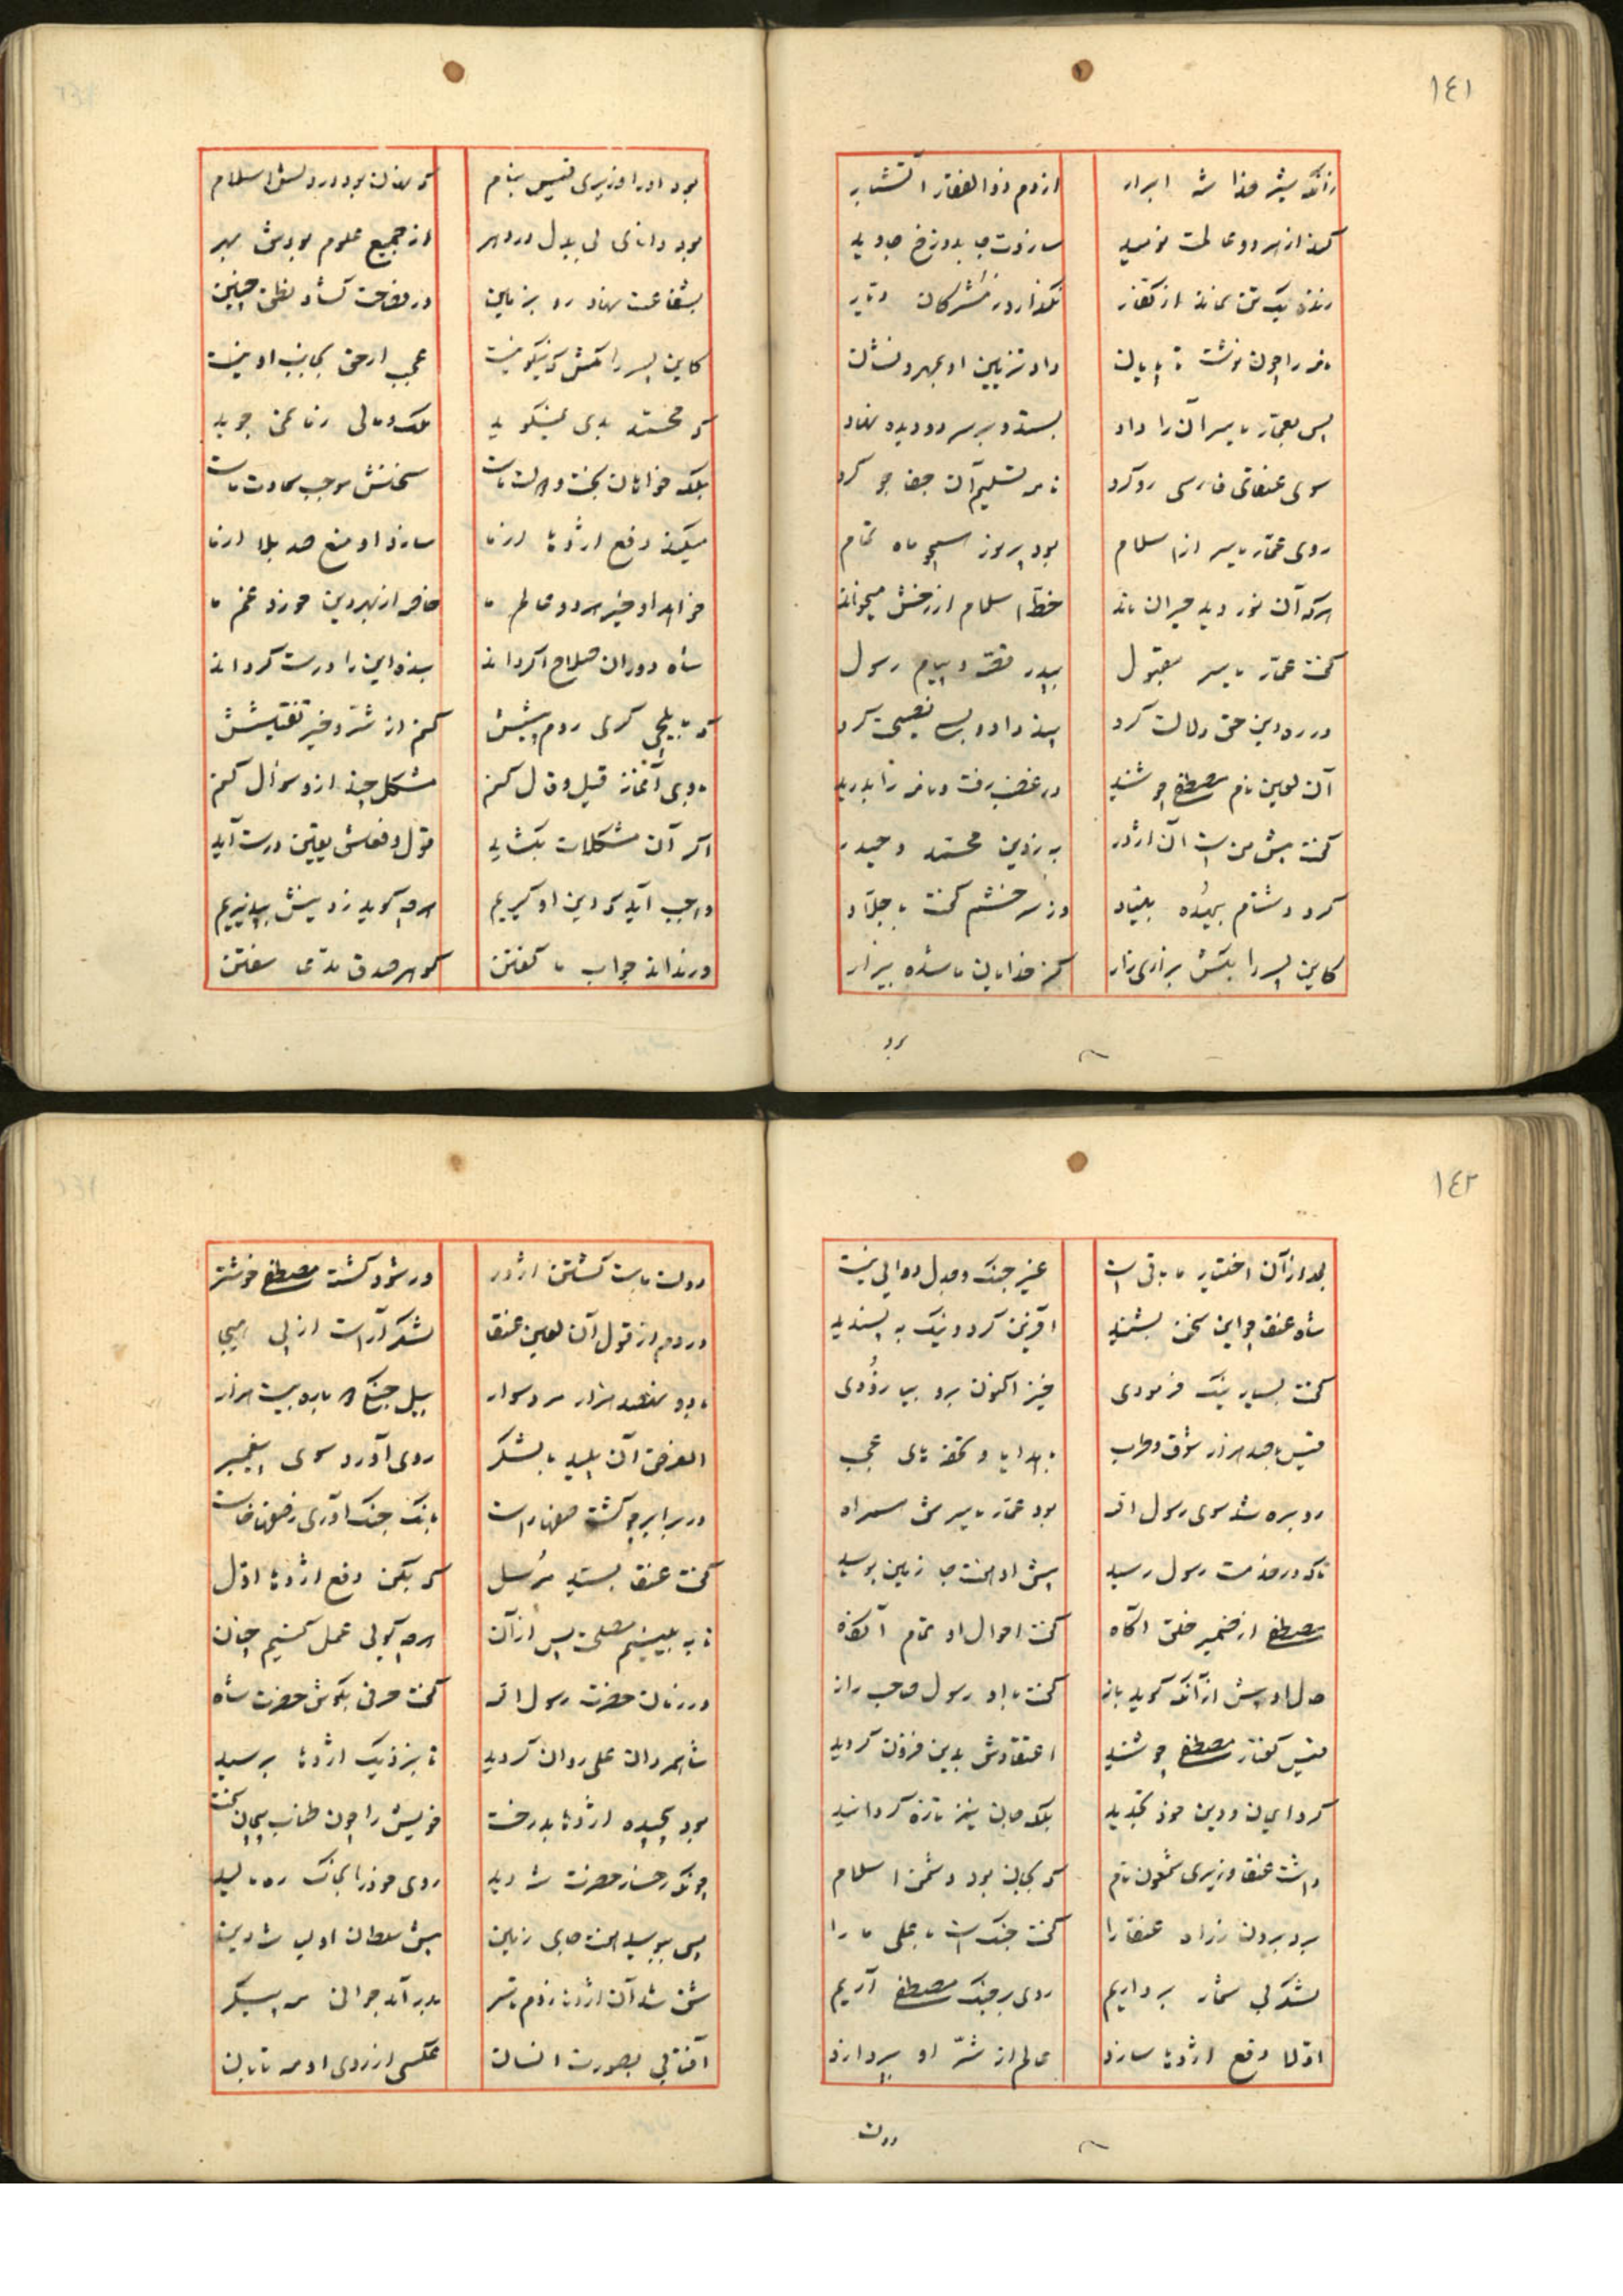 ١٤١
زانکه شیر خدا شه ابرار از دم ذوالفقار آتشبار
کند از هر دو عالمت نومید سازدت جا بدوزخ جاوید
زنده یک تن نماند از کفار نگذارد ز مشرکان دیار
نامه را چون نوشت تا پایان داد تزیین او بمهر و نشان
پس بعمار یاسر آن را داد بستد و بر سر دو دیده نهاد
سوی عنقای فارسی رو کرد نامه تسلیم آن جفا جو کرد
روی عمار یاسر از اسلام بود پرنور همچو ماه تمام
هرکه آن نور دید حیران ماند خط اسلام از رخش میخواند
گفت عمار یاسر مقبول بپدر قصه و پیام رسول
در ره دین حق دلالت کرد پند داد و بسی نصیحت کرد
آن لعین نام مصطفی چو شنید در غضب رفت و نامه را بدرید
گفت پیش من است آن اژدر به ز دین محمد و حیدر
کرد دشنام بیهده بنیاد وز سر خشم گفت با جلاد
کاین پسر را بکش بزاری زار کز خدایان ما شده بیزار
بود
بود او را وزیری قیس بنام که نهان بود در دلش اسلام
بود دانای بی بدل در دهر از جمیع علوم بودش بهر
بشفاعت نهاد رو بزمین در فصاحت گشاد نطق چنین
کاین پسر را مکش که نیکو نیست عجب ار حق بجانب او نیست
که محمد بدی نمیگوید ملک و مالی ز ما نمی جوید
بلکه خواهان بخت و دولت ماست سخنش موجب سعادت ماست
میکند دفع اژدها از ما سازد او منع صد بلا از ما
خواهد او خیر هر دو عالم ما خاصه از بهر دین خورد غم ما
شاه دوران صلاح اگر داند بنده این را درست گرداند
که بایلچی گری روم پیشش کنم از شر و خیر تفتیشش
با وی آغاز قیل و قال کنم مشکل چند ازو سوال کنم
اگر آن مشکلات بگشاید قول و فعلش یقین درست آید
واجب آید که دین او گیریم هرچه گوید ز دینش بپذیریم
ور نداند جواب ما گفتن گوهر صدق مدعا سفتن
١٤٢
بعد از آن اختیار ما باقی است غیر جنگ و جدل دوایی نیست
شاه عنقا چو این سخن بشنید آفرین کرد و نیک به پسندید
گفت بسیار نیک فرمودی خیز اکنون برو بیا زودی
قیس با صد هزار شوق و طرب با هدایا و تحفه های عجب
رو بره شد سوی رسول اله بود عمار یاسرش همراه
تا که در خدمت رسول رسید پیش او هفت جا زمین بوسید
مصطفی از ضمیر خلق آگاه گفت احوال او تمام آنگاه
حال او پیش از آنکه گوید باز گفت با او رسول صاحب راز
قیس گفتار مصطفی چو شنید اعتقادش بدین فزون گردید
کرد ایمان و دین خود تجدید بلکه جان نیز تازه گردانید
داشت عنقا وزیری شمعون نام که بجان بود دشمن اسلام
برد بیرون ز راه عنقا را گفت جنگ است با علی ما را
لشکر بی شمار برداریم روی بر جنگ مصطفی آریم
اولا دفع اژدها سازد عالم از شر او بپردازد
دولت
دولت ماست کشتن اژدر ور شود کشته مصطفی خوشتر
در دم از قول آن لعین عنقا لشکر آراست از پی هیجا
با دو هفصد هزار مرد سوار پیل جنگی دوباره بیست هزار
الغرض آن پلید با لشکر روی آورد سوی پیغمبر
در برابر چو گشت صفها راست بانگ جنگ آوری ز صفها خاست
گفت عنقا بسید مرسل که بکن دفع اژدها اول
تا به بینیم مصلحت پس از آن هرچه گویی عمل کنیم چنان
در زمان حضرت رسول اله گفت حرفی بگوش حضرت شاه
شاه مردان علی روان گردید تا بنزدیک اژدها برسید
بود پیچیده اژدها بدرخت خویش را چون طناب پیچان سخت
چونکه رخسار حضرت شه دید روی خود را بخاک ره مالید
پس ببوسید هفت جای زمین پیش سلطان اولیا شه دین
شق شد آن اژدها ز دم تا سر بدر آمد جوانی مه پیکر
آفتابی بصورت انسان عکسی از روی او مه تابان